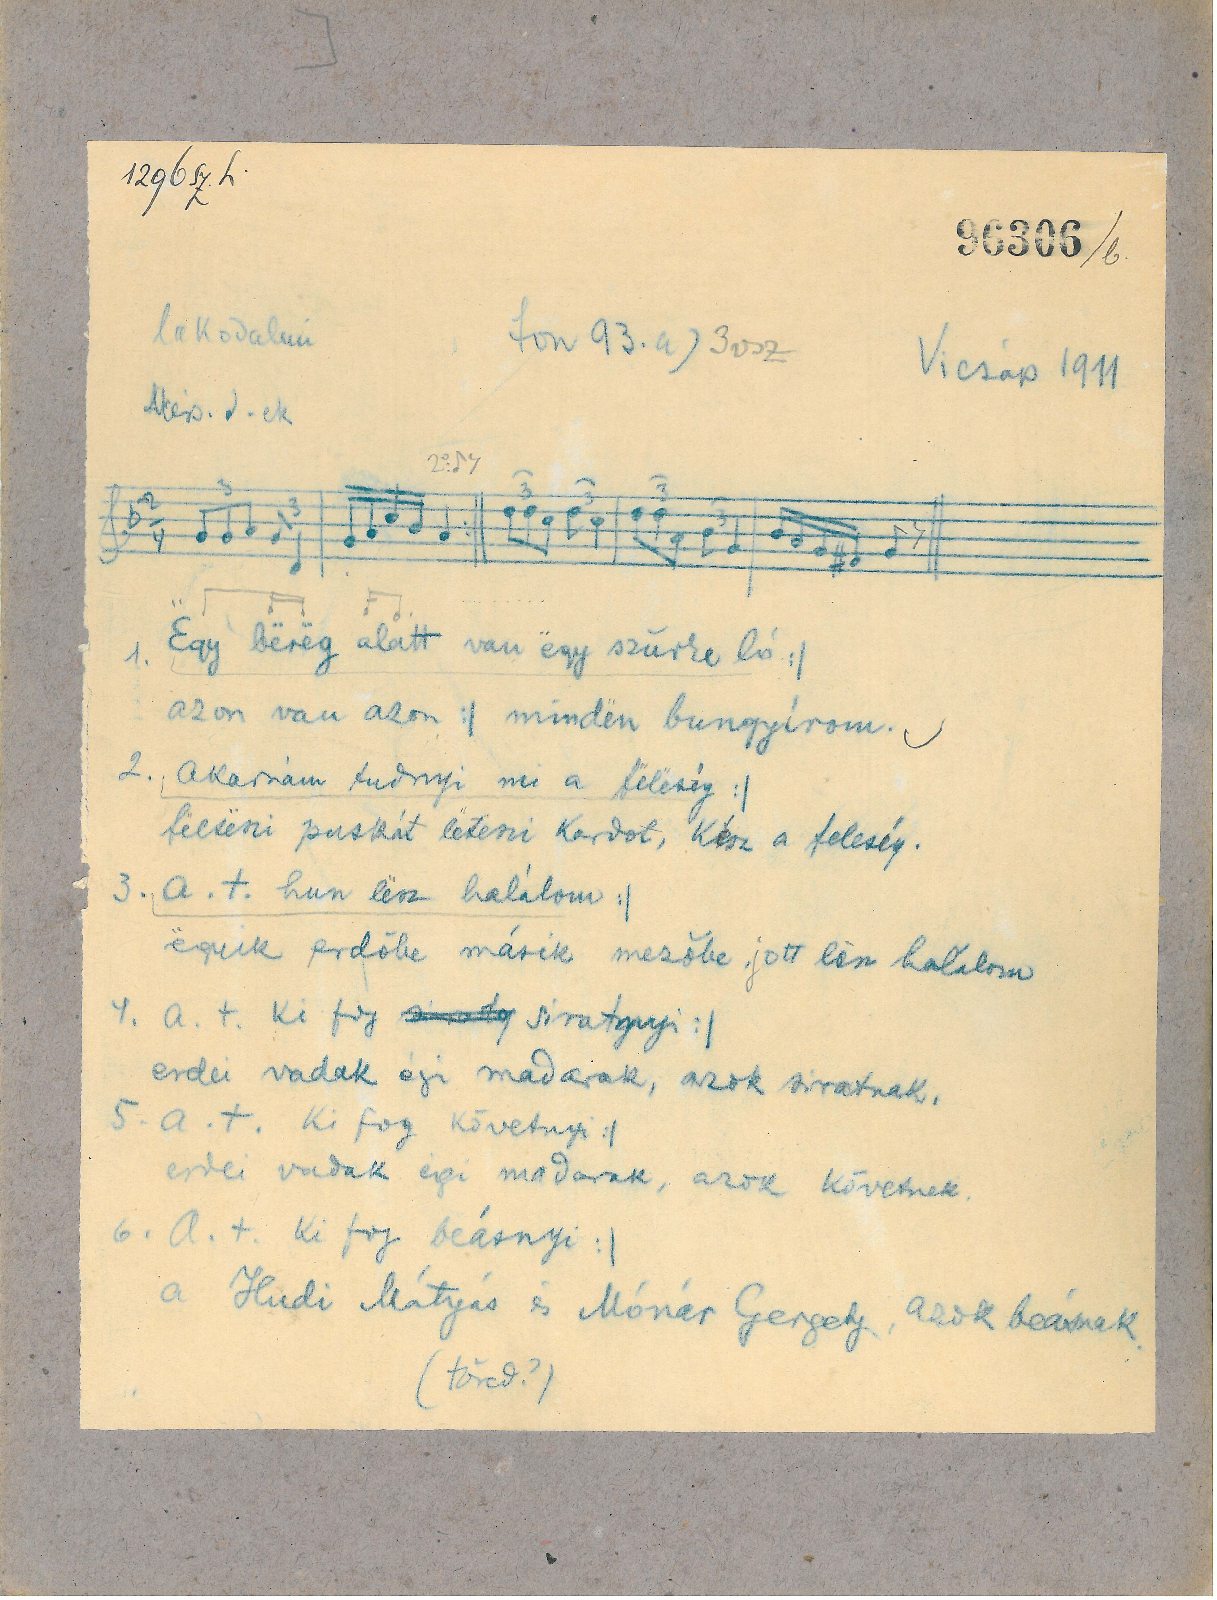 1296 sz. h.
96306/b.
lakodalmi
fon 93. a) 3 vsz
Vicsáp 1911
1. Ëgy bërëg alatt van ëgy szürke ló :|
azon van azon :| mindën bungyírom.
2. Akarnám tudnyi mi a fëlëség :|
fëltëszi puskát lëteszi kardot, kész a feleség.
3. A. t. hun lësz halálom :|
ëgyik erdőbe másik mezőbe jött lësz halálom
4. A. t. ki fog siratnyi :|
erdei vadak égi madarak, azok siratnak.
5. A. t. ki fog követnyi :|
erdei vadak égi madarak, azok követnek.
6. A. t. ki fog beásnyi :|
a Hudi Mátyás és Mónár Gergely, azok beásnak.
(töred.?)